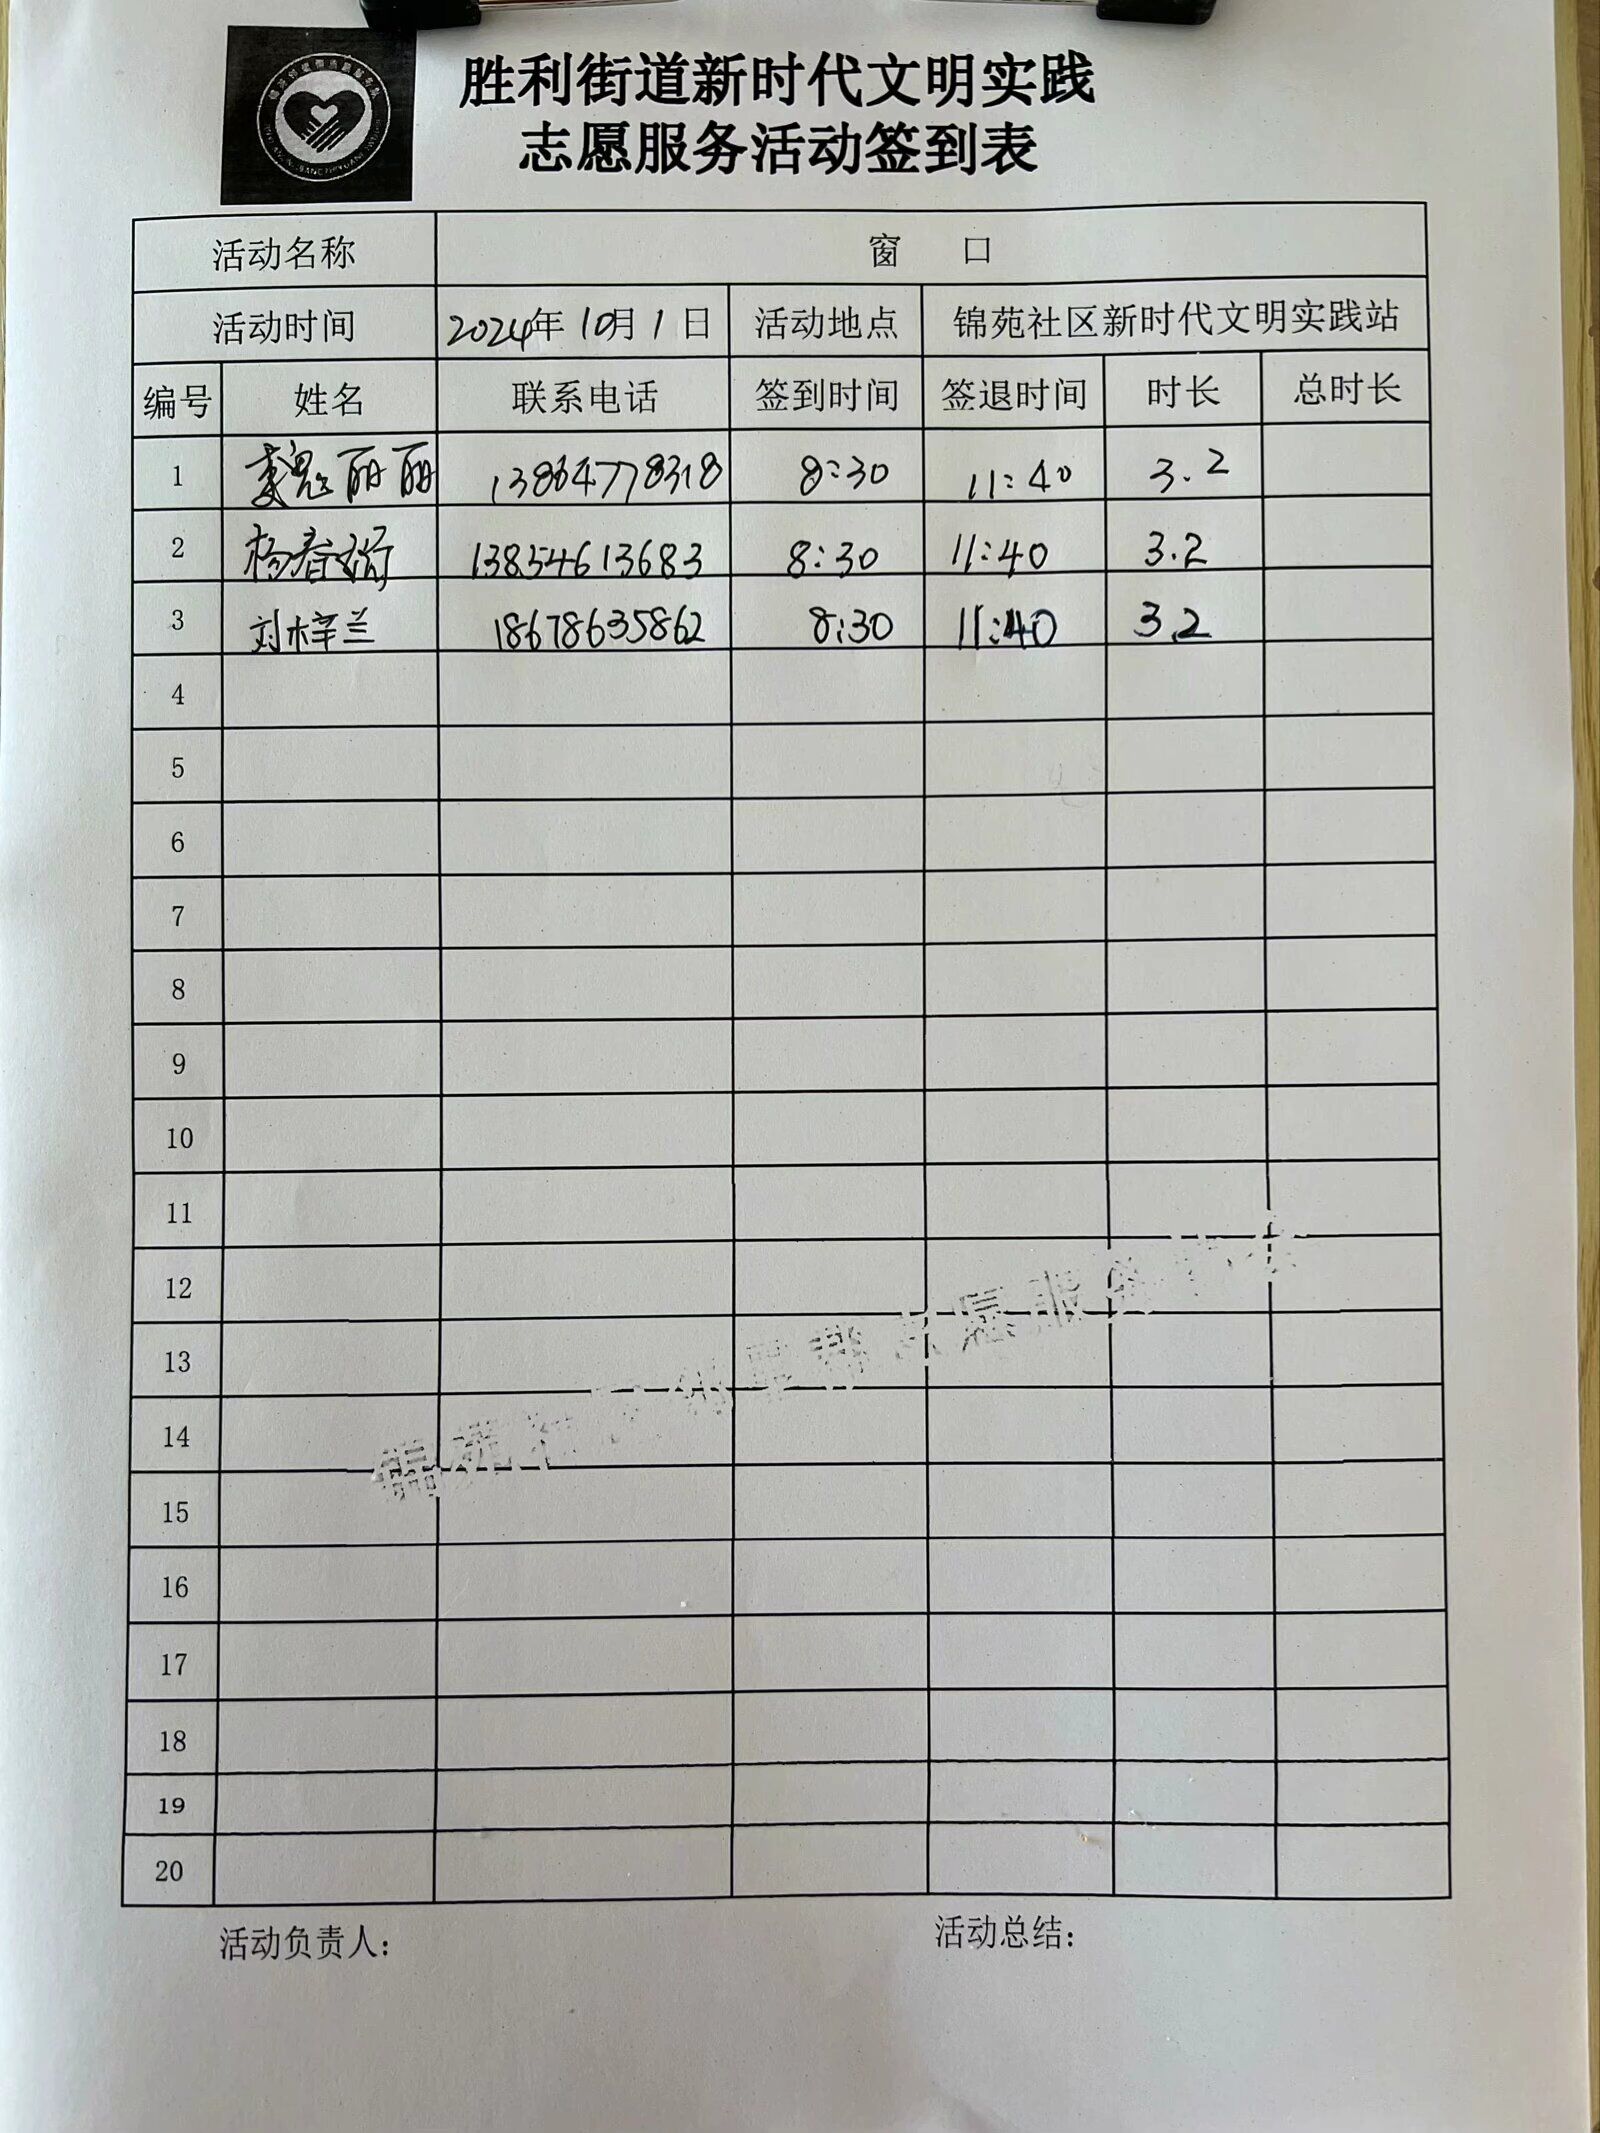 胜利街道新时代文明实践
志愿服务活动签到表
活动名称 窗 口
活动时间 2024年10月1日 活动地点 锦苑社区新时代文明实践站
编号 姓名 联系电话 签到时间 签退时间 时长 总时长
1 魏丽丽 13864778318 8:30 11:40 3.2
2 杨春娟 13854613683 8:30 11:40 3.2
3 刘梓兰 18678635862 8:30 11:40 3.2
4
5
6
7
8
9
10
11
12
13
14
15
16
17
18
19
20
活动负责人: 活动总结: